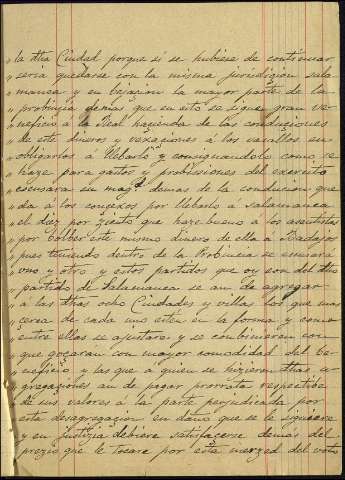 " la dha Ciudad porque si se hubiese de continuar
" seria quedarse con la misma jurisdizion sala
" manca y en bejazion la mayor parte de la
" probinzia demas que en esto se sigue gran ve
" neficio á la Real hazienda de las conduziones
" de este dinero y vexaziones á los vasallos en
" obligarlos á llebarlo y consignandolo como se
" haze para gastos y probisiones del exercito
" escusara en magd demas de la conducion que
" da á los conzejos por llebarlo á salamanca
" el diez por ziento que haze bueno á los asentistas
" por bolber este mismo dinero de ella a Badajos
" pues teniendo dentro de la Probincia se escusara
" uno y otro y estos partidos que oy son del dho
" partido de Salamanca se an de agregar
" á las dhas ocho Ciudades y villas los que mas
" cerca de cada una estén en la forma y como
" entre ellas se ajustare y se conbinieren con
" que gozarán con mayor comodidad del be
" neficio y las que a quien se hizieren dhas a
" gregaziones an de pagar prorrata respectibe
" de sus valores á la parte perjudicada por
" esta desagregazion en daño que se le siguiere
" y en justizia debiere satisfacerse demas del
" prezio que le tocare por esta merzed del voto